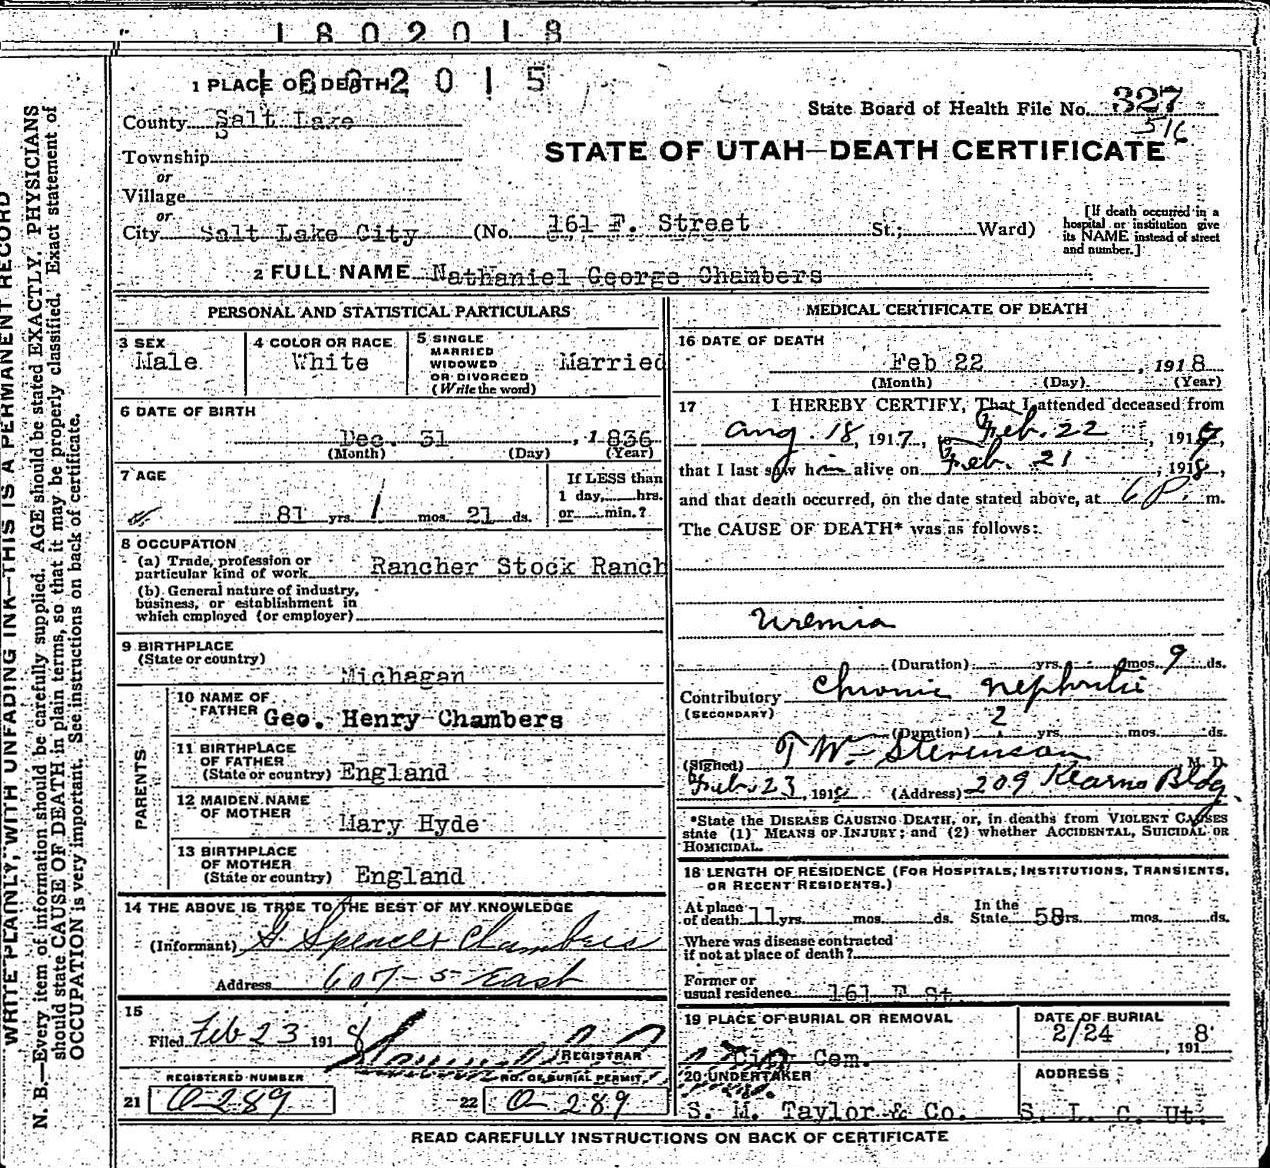 1802018
1882015
1 PLACE OF DEATH
County Salt Lake
State Board of Health File No. 327
516
Township
or
STATE OF UTAH—DEATH CERTIFICATE
Village
or
City Salt Lake City (No. 161 F. Street St.; Ward)
[If death occurred in a
hospital or institution give
its NAME instead of street
and number.]
2 FULL NAME Nathaniel George Chambers
PERSONAL AND STATISTICAL PARTICULARS
3 SEX
Male
4 COLOR OR RACE
White
5 SINGLE
MARRIED
WIDOWED
OR DIVORCED
(Write the word)
Married
6 DATE OF BIRTH
Dec. 31, 1836
(Month) (Day) (Year)
7 AGE
81 yrs. 1 mos. 21 ds.
If LESS than
1 day, hrs.
or min.?
8 OCCUPATION
(a) Trade, profession or
particular kind of work Rancher Stock Ranch
(b) General nature of industry,
business, or establishment in
which employed (or employer)
9 BIRTHPLACE
(State or country)
Michagan
PARENTS
10 NAME OF
FATHER Geo. Henry Chambers
11 BIRTHPLACE
OF FATHER
(State or country) England
12 MAIDEN NAME
OF MOTHER
Mary Hyde
13 BIRTHPLACE
OF MOTHER
(State or country) England
14 THE ABOVE IS TRUE TO THE BEST OF MY KNOWLEDGE
(Informant) G Spencer Chambers
Address 607-5 East
15
Filed Feb 23 1918
REGISTRAR
REGISTERED NUMBER
21 289
NO. OF BURIAL PERMIT
22 289
MEDICAL CERTIFICATE OF DEATH
16 DATE OF DEATH
Feb 22, 1918
(Month) (Day) (Year)
17 I HEREBY CERTIFY, That I attended deceased from
Aug. 18, 1917, to Feb. 22, 191
that I last saw him alive on Feb. 21, 1918,
and that death occurred, on the date stated above, at 6 P. m.
The CAUSE OF DEATH* was as follows:
Uremia
(Duration) yrs. mos. 9 ds.
Contributory Chronic nephritis
(SECONDARY)
2
(Duration) yrs. mos. ds.
(Signed) T W Stevenson M. D.
Feb. 23, 191 (Address) 209 Kearns Bldg.
*State the DISEASE CAUSING DEATH, or, in deaths from VIOLENT CAUSES
state (1) MEANS OF INJURY; and (2) whether ACCIDENTAL, SUICIDAL OR
HOMICIDAL.
18 LENGTH OF RESIDENCE (FOR HOSPITALS, INSTITUTIONS, TRANSIENTS,
OR RECENT RESIDENTS.)
At place
of death 11 yrs. mos. ds.
In the
State 58 rs. mos. ds.
Where was disease contracted
if not at place of death?
Former or
usual residence 161 F St.
19 PLACE OF BURIAL OR REMOVAL
City Cem.
DATE OF BURIAL
2/24, 1918
20 UNDERTAKER
S. M. Taylor & Co.
ADDRESS
S. L. C. Ut.
READ CAREFULLY INSTRUCTIONS ON BACK OF CERTIFICATE
WRITE PLAINLY, WITH UNFADING INK—THIS IS A PERMANENT RECORD
N. B.—Every item of information should be carefully supplied. AGE should be stated EXACTLY. PHYSICIANS
should state CAUSE OF DEATH in plain terms, so that it may be properly classified. Exact statement of
OCCUPATION is very important. See instructions on back of certificate.